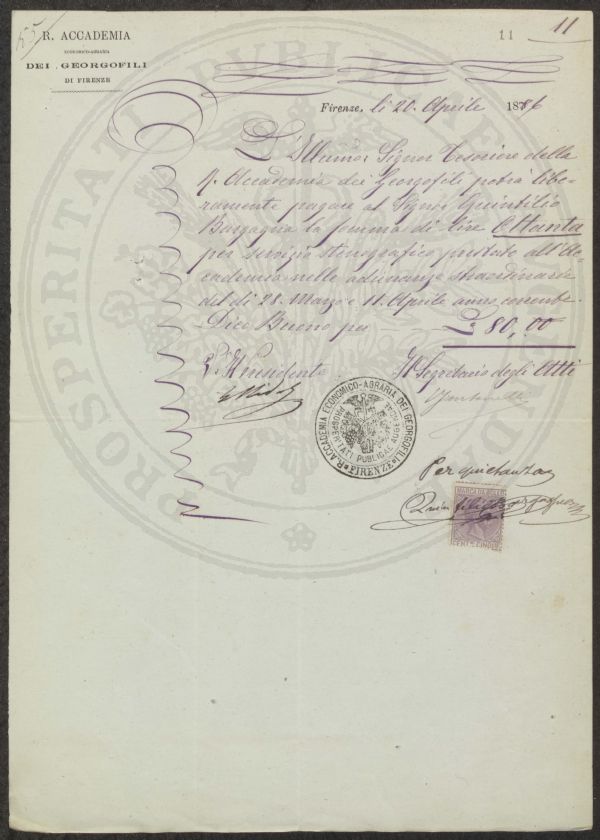 155
R. ACCADEMIA
ECONOMICO-AGRARIA
DEI GEORGOFILI
DI FIRENZE
11
11
Firenze, li 20. Aprile 1886
L'Illumo: Signor Tesoriere della
R. Accademia dei Georgofili potrà libe-
ramente pagare al Signor Quintilio
Bargagna la somma di lire Ottanta
per servizio stenografico prestato all'Ac-
cademia nelle adunanze straordinarie
del dì 28. Marzo e 11. Aprile anno corrente.
Dico Buono per L. 80,00
Il Presidente
Il Segretario degli Atti
R. ACCADEMIA ECONOMICO-AGRARIA DEI GEORGOFILI
PROSPERITATI PUBLICAE AUGENDAE
FIRENZE
Per quietanza
Quintilio
MARCA DA BOLLO
CENT. CINQUE
PROSPERITATI PVBLICAE